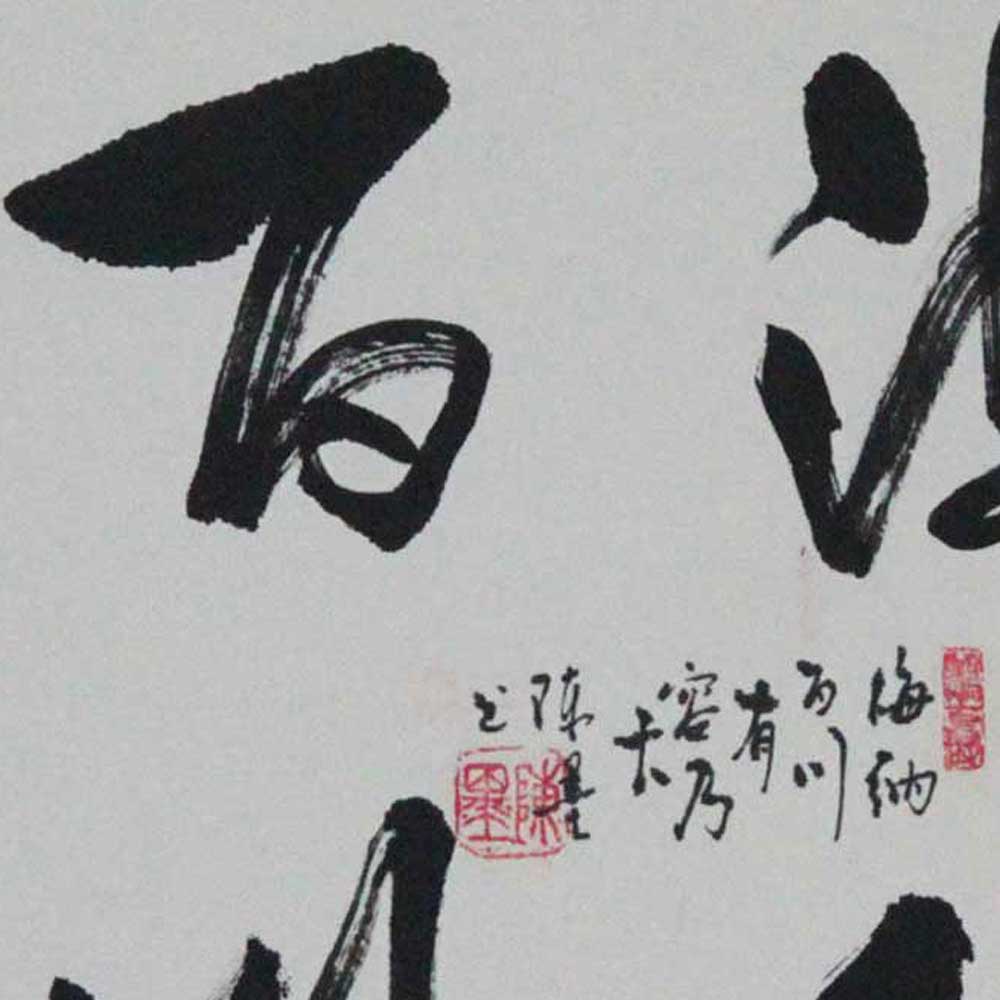 百
海纳
百川
有
容乃
大
陈墨
书
陳墨